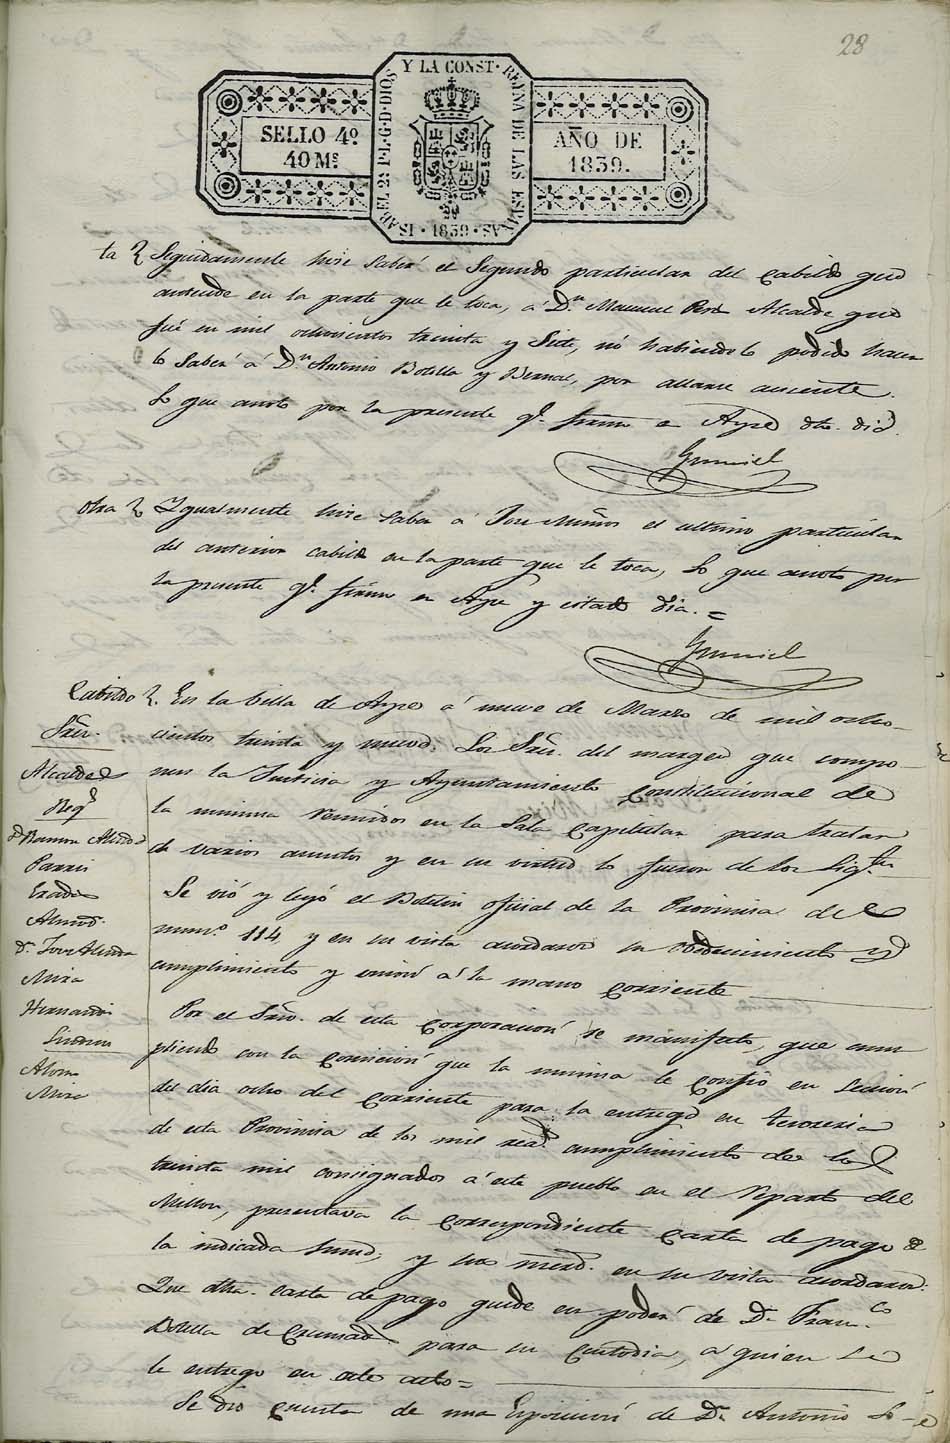 28
SELLO 4º
40 Mˢ
ISABEL 2ª P·L·G·D·DIOS Y LA CONST· REYNA DE LAS ESPAÑAS
· 1839 ·
AÑO DE
1839.
Seguidamente hise saber el Segundo particular del Cabildo que
antecede en la parte que le toca, á Dn. Manuel Alcalde que
fué en mil ochosientos treinta y Siete, no habiendolo podido hacer
lo saber á Dn. Antonio Botella y Bernal, por allarse ausente.
Lo que anoto por la presente q.e firmo en Aspe dho. dia.
Gumiel
Otra Igualmente hise saber á Jose Muños el ultimo particular
del anterior cabildo en la parte que le toca, Lo que anoto por
la presente q.e firmo en Aspe y citado dia. =
Gumiel
Cabildo. En la Villa de Aspe á nueve de Marzo de mil ocho-
Sres.
cientos treinta y nueve: Los Sres. del margen que compo-
Alcaldes
nen la Justicia y Ayuntamiento Constitucional de
Reg.s
la misma reunidos en la Sala Capitular para tratar
D. Ramon Almod.
de varios asuntos y en su virtud lo fueron de los Sig.tes
Se vió y leyó el Boletin oficial de la Provincia del
num.º 114, y en su vista acordaron su obedecimiento y
Almod.
Dn. Jose
cumplimiento y union á la mano corriente
Mira
Por el Srio. de esta Corporacion se manifesto, que cum
Hernandez
pliendo con la comicion que la misma le confio en secion
Sindico
del dia ocho del corriente para la entrega en tesoreria
Mira
de esta Provincia de los mil rea.s cumplimiento de los
treinta mil consignados á este pueblo en el reparto del
Millon, presentava la correspondiente carta de pago de
la indicada suma; y sus merd. en su vista acordaron:
Que dha. carta de pago quede en poder de Dn. Fran.co
Botella de para su custodia, á quien se
le entrego en este acto =
Se dio cuenta de una Exposicion de Dn. Antonio